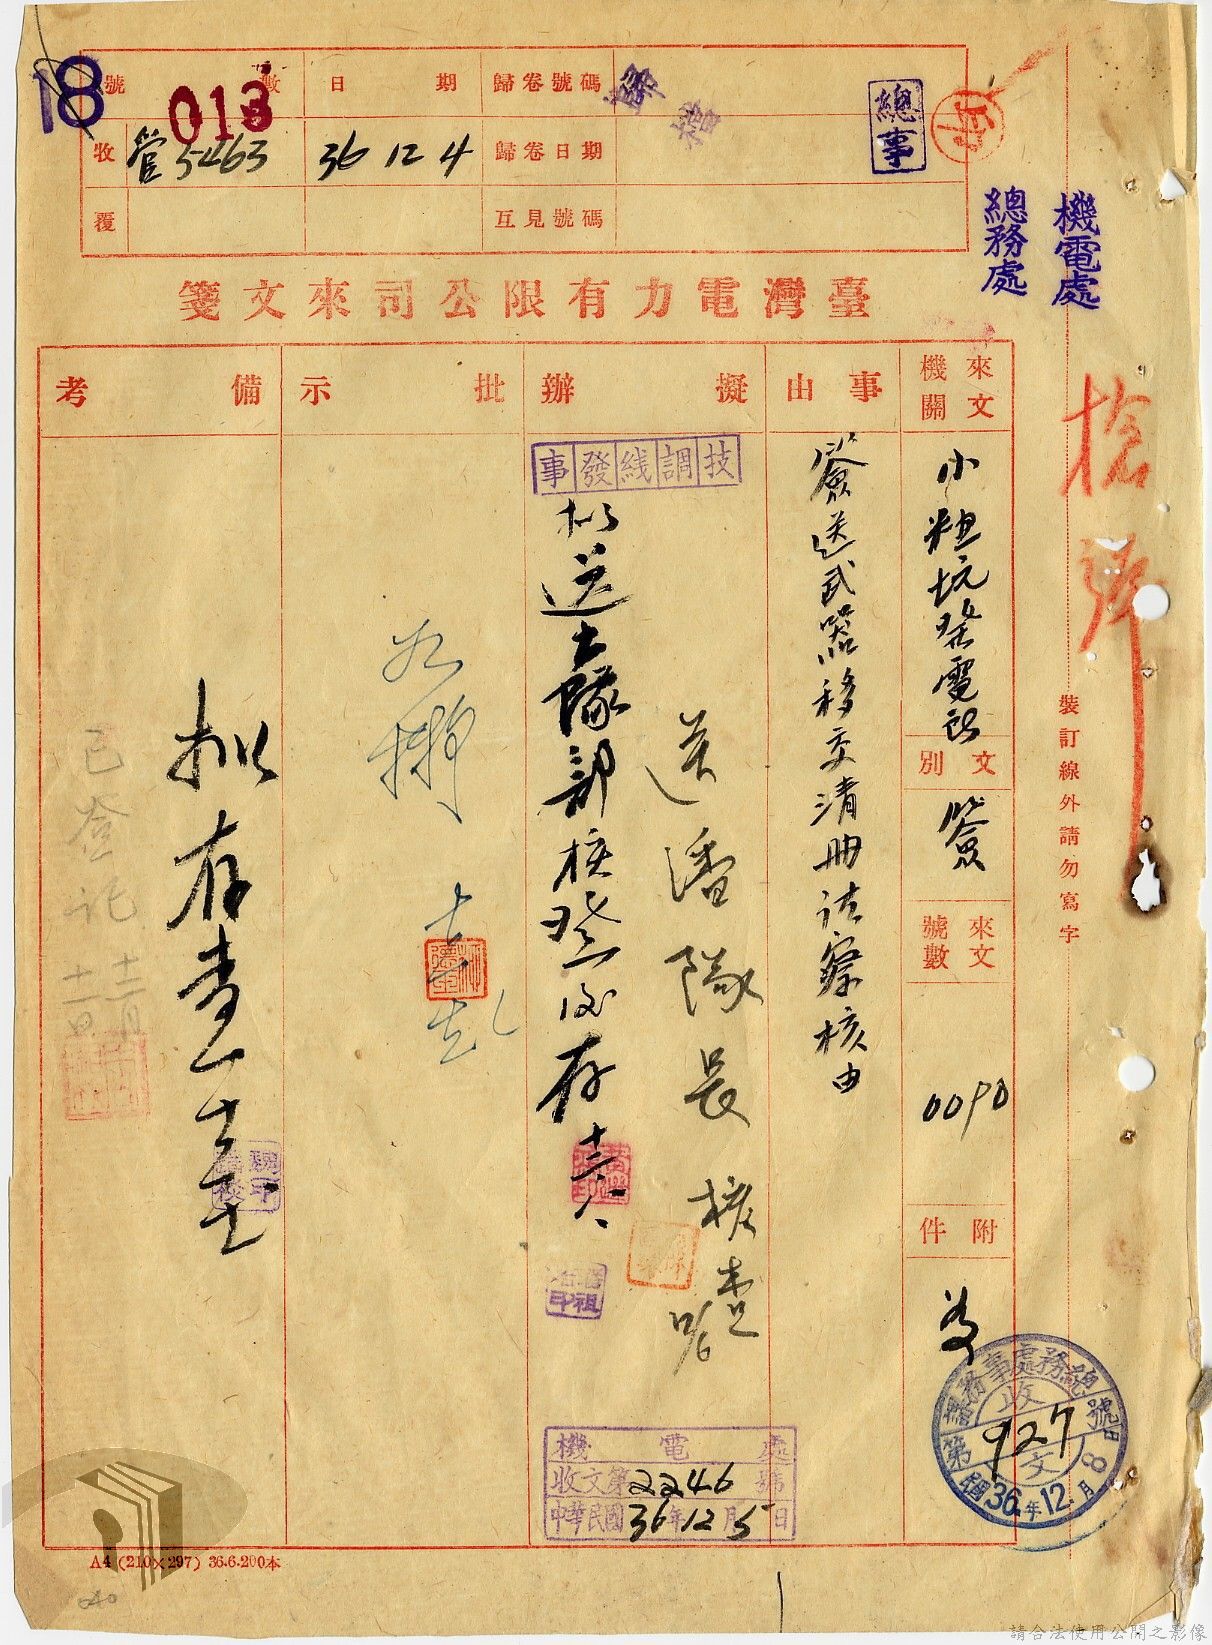 18
013
號數
日期
歸卷號碼
歸檔
收
管5463
36 12 4
歸卷日期
覆
互見號碼
總事
總務處
機電處
臺灣電力有限公司來文箋
來文機關
事由
擬辦
批示
備考
小粗坑發電所
文別
簽
來文號數
0090
附件
簽送武器移交清冊請察核由
技調綫發事
送潘隊長核查
拟送大隊部核登後存
拟存查
已登記
裝訂線外請勿寫字
機電處
收文第2246號
中華民國36年12月5日
總務處事務
收文
第927號
民國36年12月8日
A4 (210×297) 36.6.200本
請合法使用公開之影像